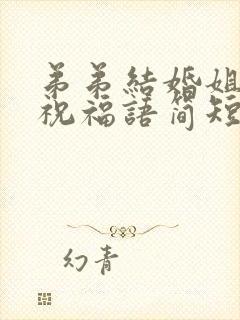 弟弟結婚姐
祝福語简短
幻青